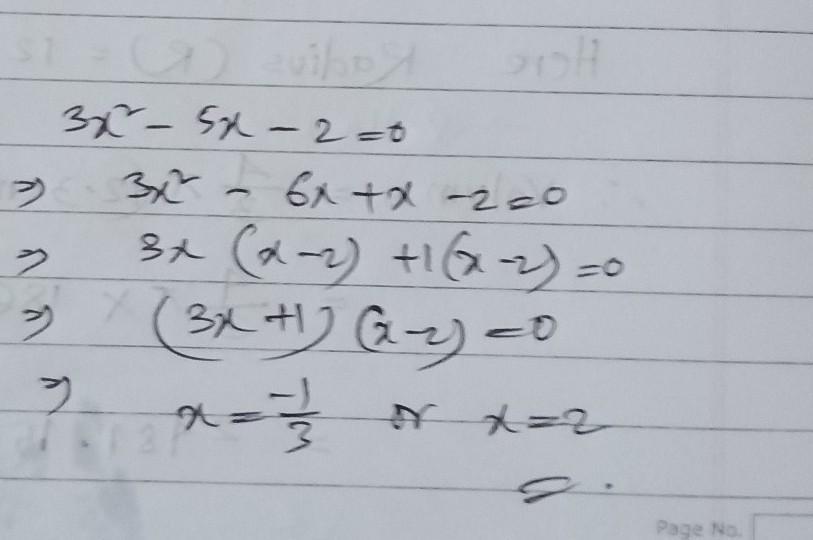 3x² - 5x - 2 = 0
⇒ 3x² - 6x + x - 2 = 0
⇒ 3x (x-2) + 1(x-2) = 0
⇒ (3x+1) (x-2) = 0
⇒ x = -1/3 or x = 2
Page No.